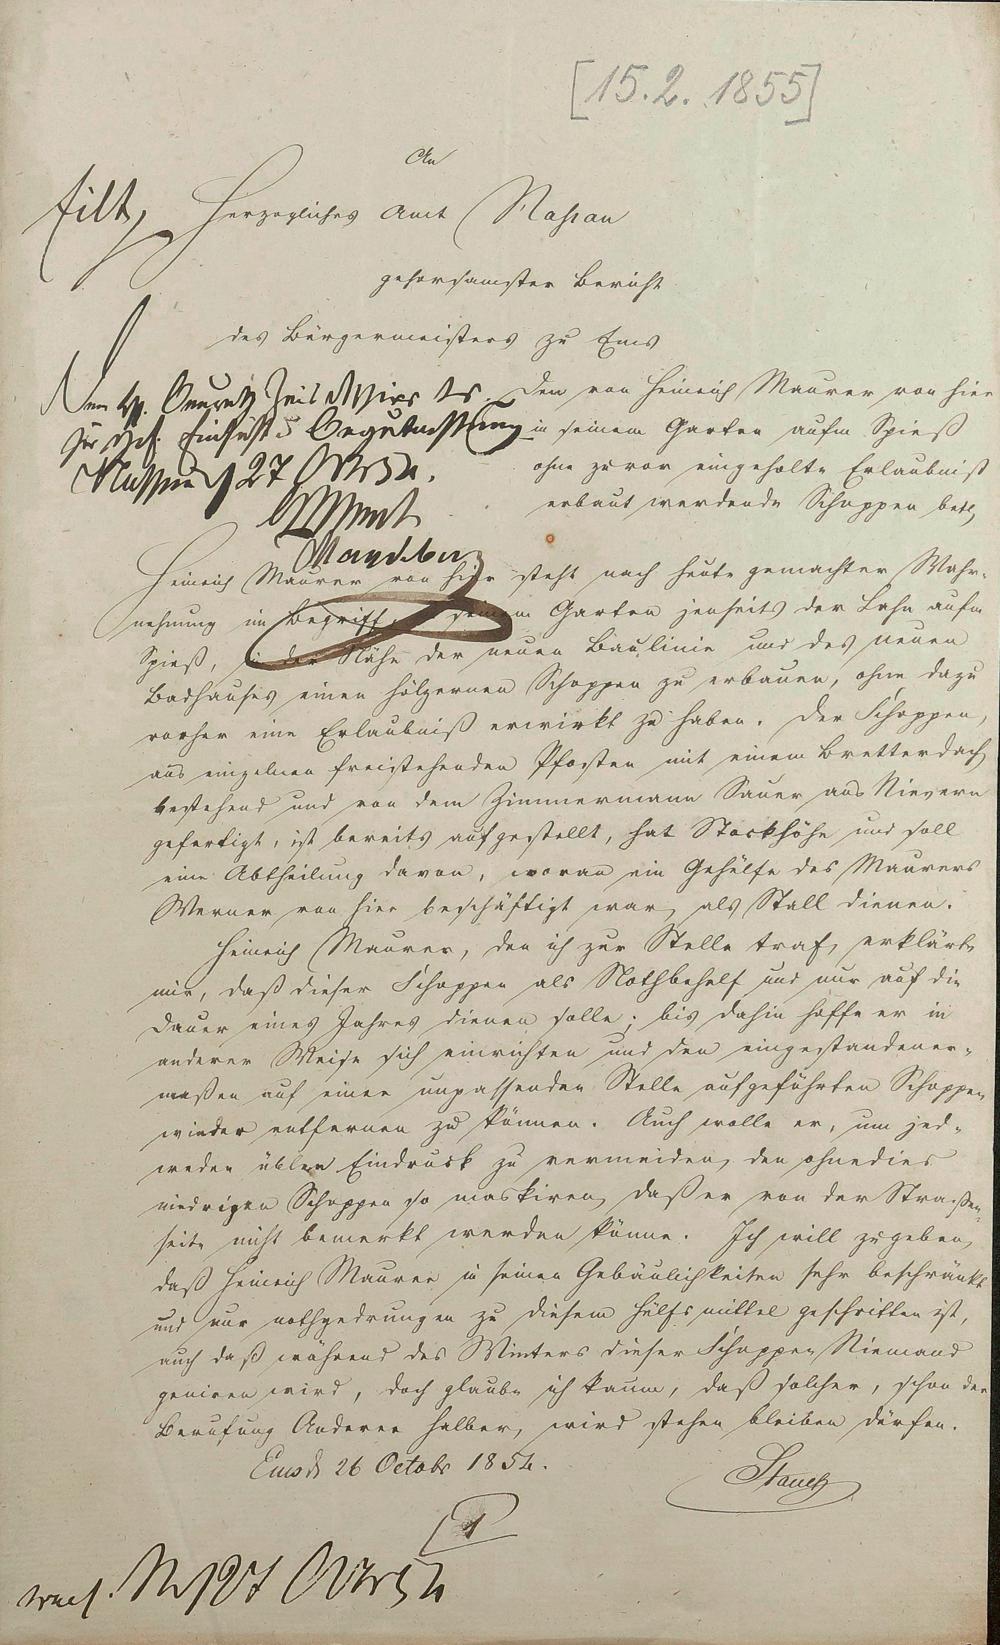 [15.2.1855]
An
Eilt, Herzogliches Amt Nassau
gehorsamster Bericht
des Bürgermeisters zu Ems
Den von Heinrich Maurer von hier
in seinem Garten aufm Spieß
ohne zuvor eingeholte Erlaubniß
erbaut werdende Schoppen betr,
zur Einsicht u Begutachtung
Nassau d 27 Oct 54.
Heinrich Maurer von hier steht nach heute gemachter Wahr-
nehmung im Begriff, in seinem Garten jenseits der Lahn aufm
Spieß, in der Nähe der neuen Baulinie und des neuen
Badhauses einen hölzernen Schoppen zu erbauen, ohne dazu
vorher eine Erlaubniß erwirkt zu haben. Der Schoppen,
aus einzelnen freistehenden Pfosten mit einem Bretterdach
bestehend und von dem Zimmermann Sauer aus Nievern
gefertigt, ist bereits aufgestellt, hat Stockhöhe und soll
eine Abtheilung davon, woran ein Gehülfe des Maurers
Werner von hier beschäftigt war, als Stall dienen.
Heinrich Maurer, den ich zur Stelle traf, erklärte
mir, daß dieser Schoppen als Nothbehelf und nur auf die
Dauer eines Jahres dienen solle; bis dahin hoffe er in
anderer Weise sich einrichten und den eingestandener-
maßen auf einer unpassenden Stelle aufgeführten Schoppen
wieder entfernen zu können. Auch wolle er, um jed-
weden üblen Eindruck zu vermeiden, den ohnedies
niedrigen Schoppen so maskiren, daß er von der Straßen-
seite nicht bemerkt werden könne. Ich will zugeben,
daß Heinrich Maurer in seinen Gebäulichkeiten sehr beschränkt
und nur nothgedrungen zu diesem Hülfsmittel geschritten ist,
auch daß während des Winters dieser Schoppen Niemand
geniren wird, doch glaube ich kaum, daß solcher, schon der
Berufung Anderer halber, wird stehen bleiben dürfen.
Ems d 26 Octobr 1854.
1